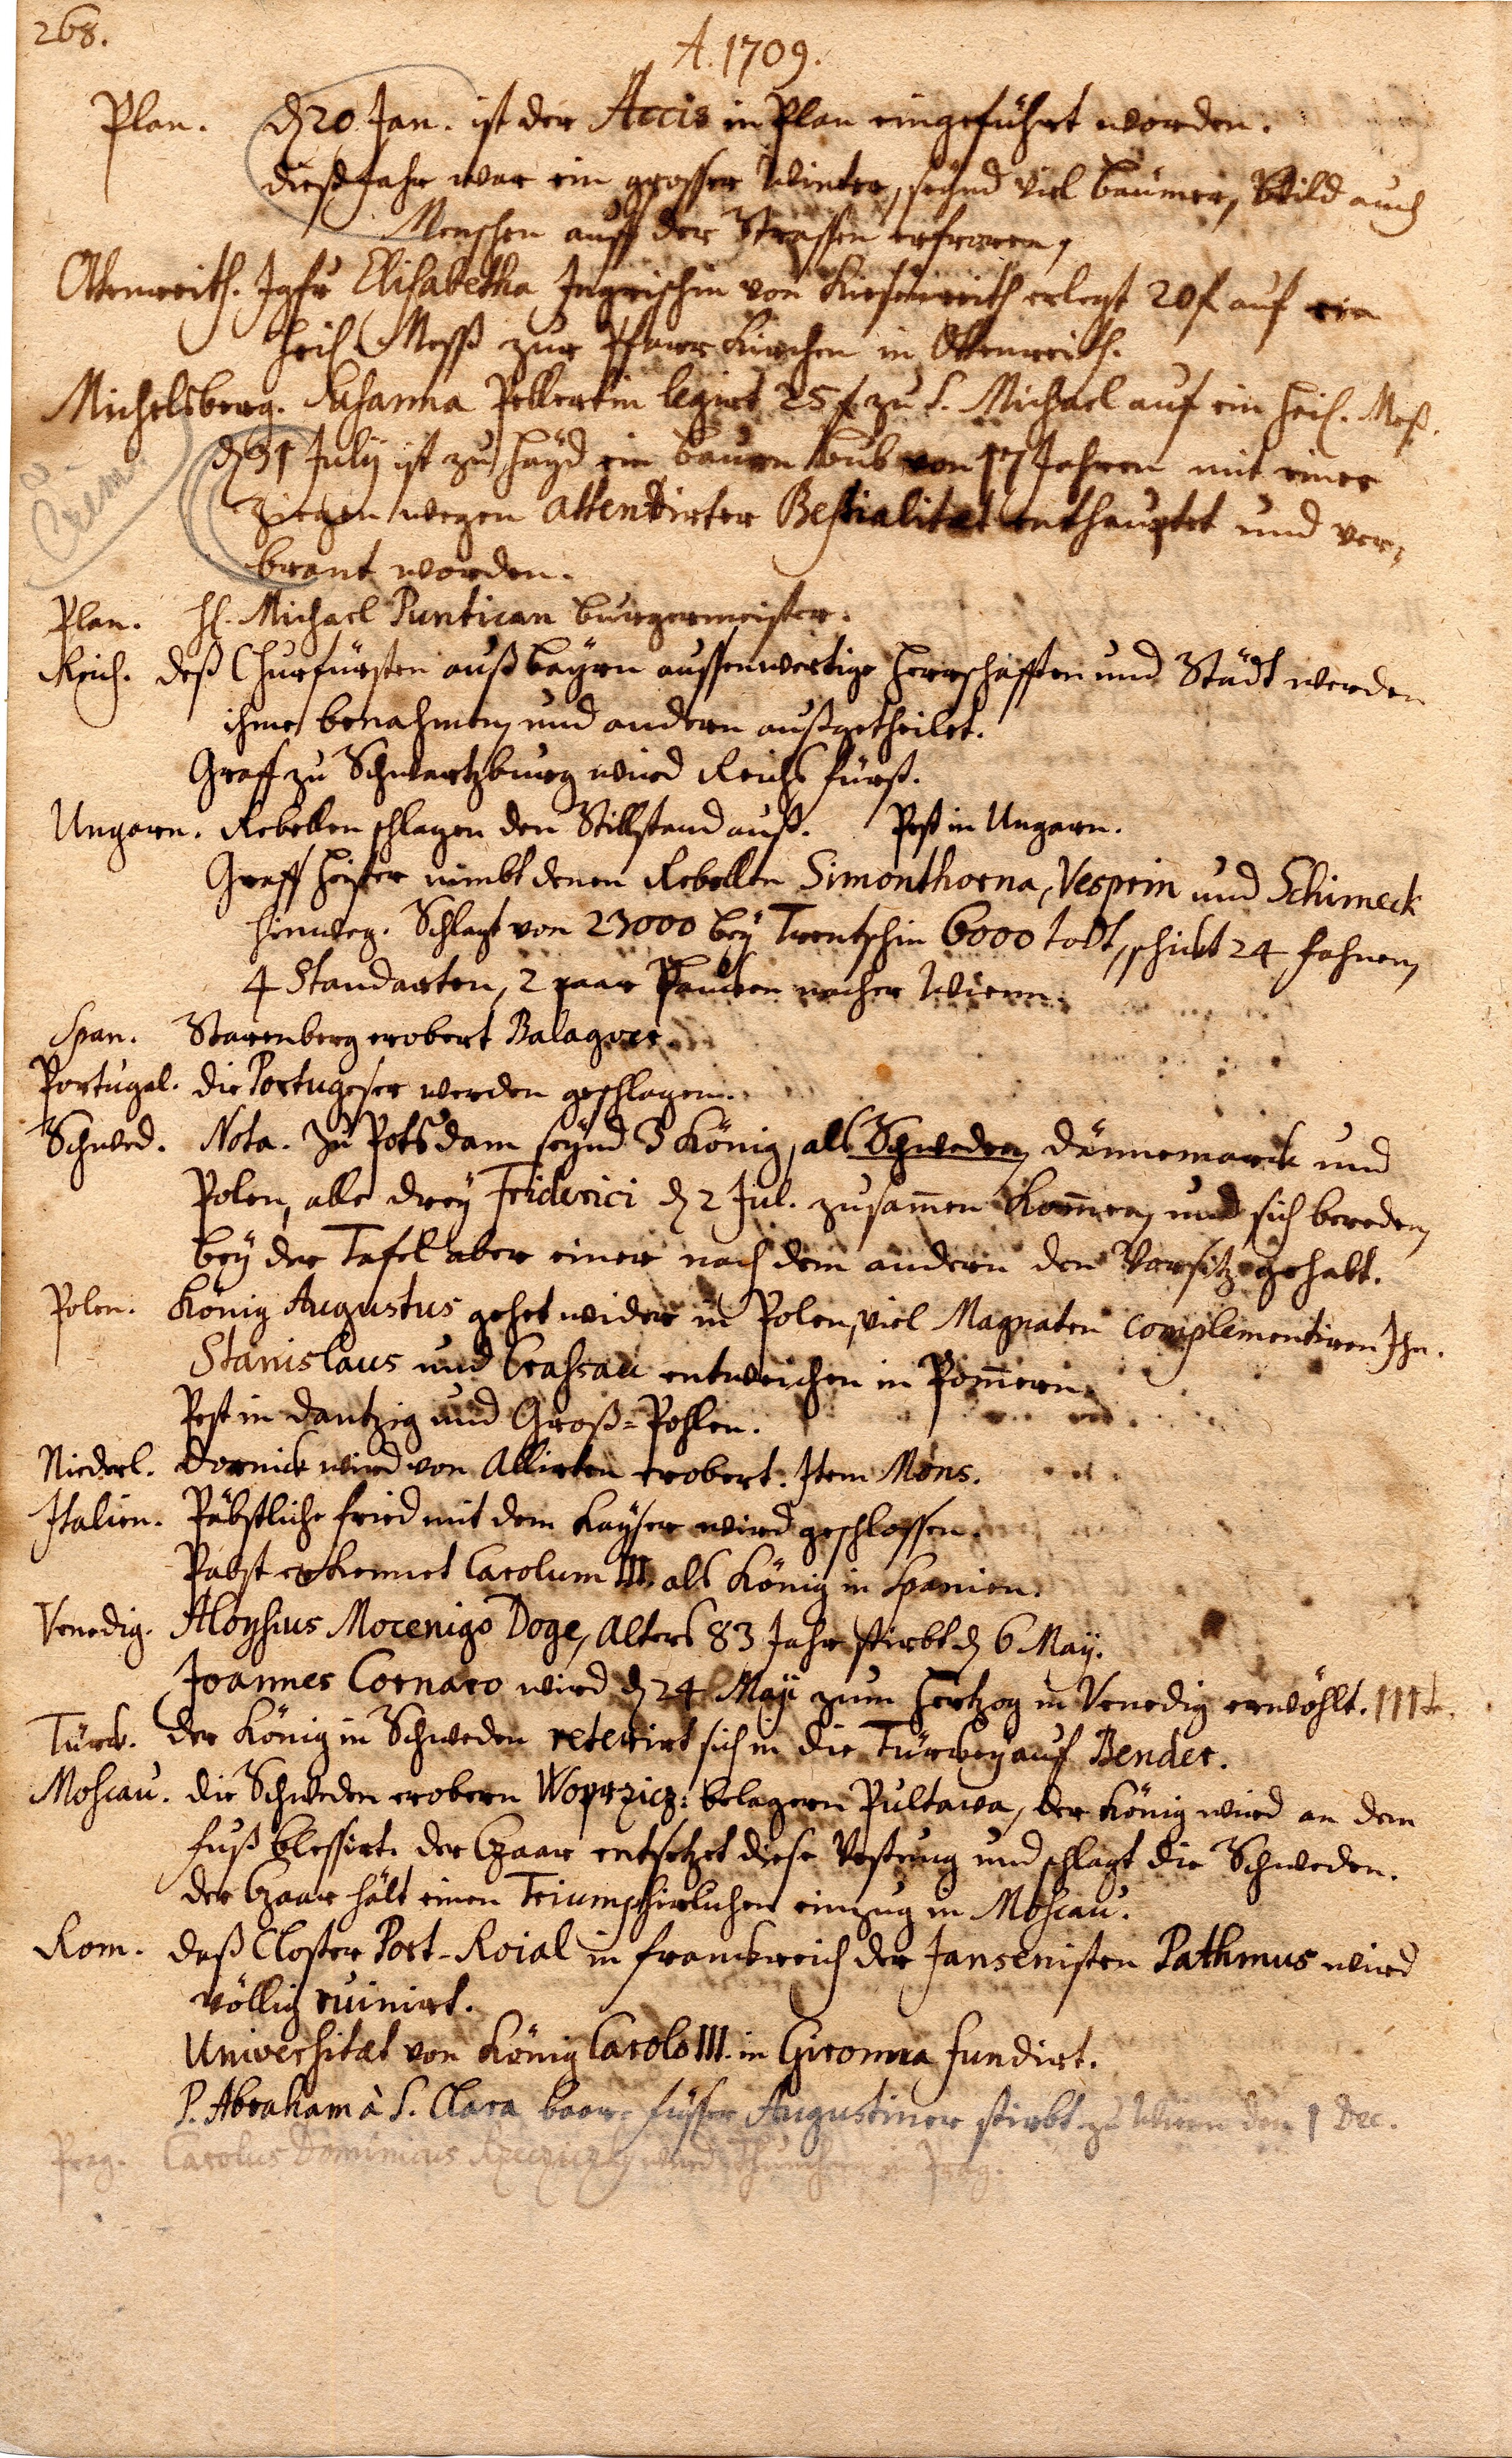 268.
A. 1709.
Plan. d 20 Jan. ist der Accis in Plan eingeführt worden.
dieß Jahr war ein grosser Winter, seynd viel bäumer, Wild auch
Menschen auff der Strassen erfroren,
Ottenreith. Jgfr Elisabetha Ingrischin von Kiesenreith erlegt 20 f auf ein
heil. Mess zur Pfarr Kirchen in Ottenreith.
Michelsberg. Susanna Pellertin legirt 25 f zu S. Michael auf ein heil. Meß.
d 31 Julij ist zu Hayd ein bauern bub von 17 Jahren mit einer
Crim.
Ziegen wegen attentirter Bestialitæt enthauptet und ver,
brant worden.
Plan. H. Michael Puntican burgermeister.
Reich. deß Churfürsten auß bayrn aussenwertige Herrschafften und Städt werden
ihme benahmen, und andern außgetheilet.
Graff zu Schwartzburg wird Reichs fürst.
Ungarn. Rebellen schlagen den Stillstand auß. Pest in Ungarn.
Graff Heister nimbt denen Rebellen Simonthorna, Vesprin und Schimeck
hinweg. Schlagt von 23000 bey Trentschin 6000 todt, schickt 24 fahnen,
4 Standarten, 2 paar Paucken nacher Wienn.
Span. Starenberg erobert Balaguer.
Portugal. die Portugeser werden geschlagen.
Schwed. Nota. Zu Potsdam seynd 3 König, als Schweden, Dännemarck und
Polen, alle drey Friderici d 2 Jul. zusam̄en kom̄en, und sich bereden,
bey der Tafel aber einer nach dem andern den Vorsitz gehabt.
Polen. König Augustus gehet wider in Polen, viel Magnaten complementiren Ihn.
Stanislaus und Crassau entweichen in Pom̄ern.
Pest in Dantzig und Groß=Pohlen.
Niederl. Dornick wird von Allirten erobert. Item Mons.
Italien. Päbstliche fried mit dem Kayser wird geschlossen.
Pabst erkennet Carolum III. als König in Spanien.
Venedig. Aloysius Mocenigo Doge, alters 83 Jahr stirbt d 6 May.
Joannes Cornaro wird d 24 Maji zum Hertzog in Venedig erwöhlt. 111 te.
Türck. der König in Schweden reterirt sich in die Türckey auf Bender.
Moscau. die Schweden erobern Woprzicz: belagern Pultawa, der König wird an dem
fuß blessirt. der Czaar entsetzet diese Vestung und schlagt die Schweden.
der Czaar hält einen Triumphirlichen einzug in Moscau.
Rom. daß Closter Port-Roial in franckreich der Jansenisten Pathmus wird
völlig ruinirt.
Universitæt von König Carolo III. in Gironna fundirt.
P. Abraham à S. Clara baar=füsser Augustiner stirbt zu Wien den 1 Dec.
Prag. Carolus Dominicus wird in Prag.